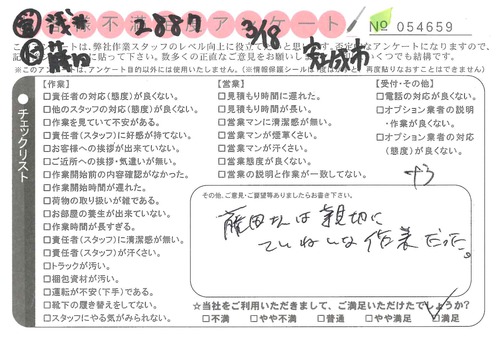 営 浅井 2887 3/18 安城市
業務不満足度アンケート
№ 054659
藤田
このアンケートは、弊社作業スタッフのレベル向上に役立て
は一切使用いたしません。
チェックリスト
【作業】
□責任者の対応(態度)が良くない。
□他のスタッフの対応(態度)が良くない。
□作業を見ていて不安がある。
□責任者(スタッフ)に好感が持てない。
□お客様への挨拶が出来ていない。
□ご近所への挨拶・気遣いが無い。
□作業開始前の内容確認がなかった。
□作業開始時間が遅れた。
□荷物の取り扱いが雑である。
□お部屋の養生が出来ていない。
□作業時間が長すぎる。
□責任者(スタッフ)に清潔感が無い。
□責任者(スタッフ)が汗くさい。
□トラックが汚い。
□梱包資材が汚い。
□運転が不安(下手)である。
□靴下の履き替えをしてない。
□スタッフにやる気がみられない。
【営業】
□見積もり時間に遅れた。
□見積もり時間が長い。
□営業マンに清潔感が無い。
□営業マンが煙草くさい。
□営業マンが汗くさい。
□営業態度が良くない。
□営業の説明と作業が一致してない。
【受付・その他】
□電話の対応が良くない。
□オプション業者の説明
・作業が良くない。
□オプション業者の対応
(態度)が良くない。
その他、ご意見・ご要望等ありましたらお書き下さい。
藤田さんは親切に
ていねいな作業だった。
☆当社をご利用いただきまして、ご満足いただけたでしょうか?
□不満 □やや不満 □普通 □やや満足 □満足